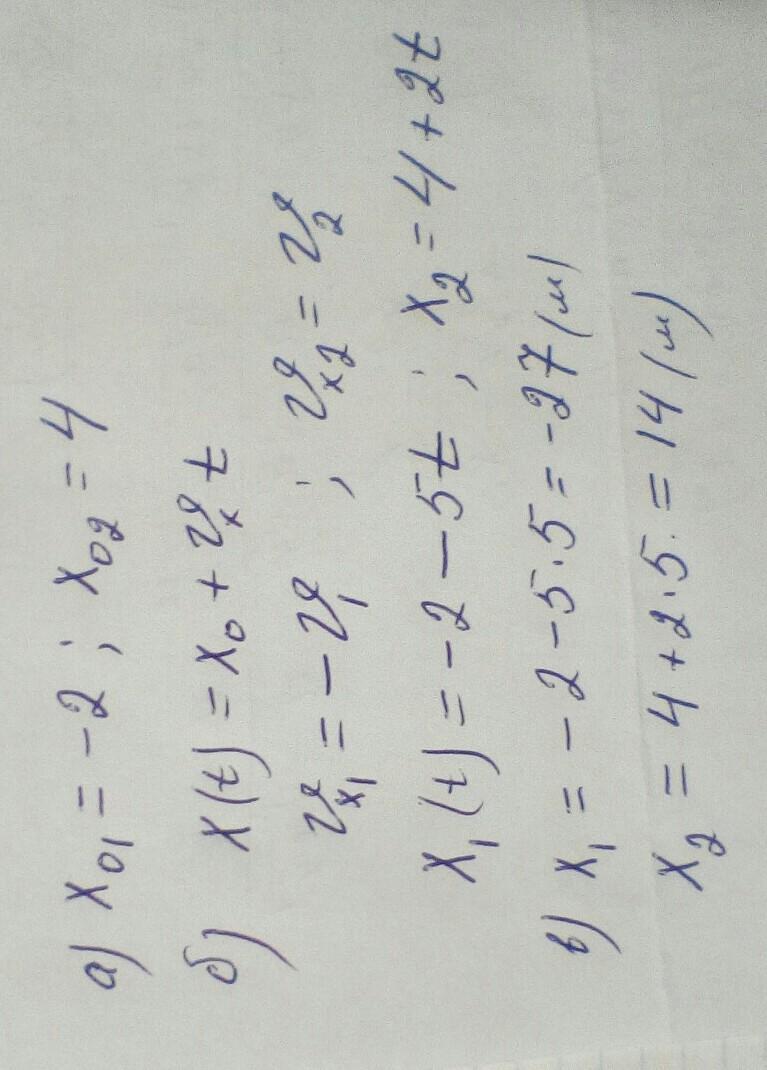 а) x₀₁ = -2 ; x₀₂ = 4
б) x(t) = x₀ + vₓt
vₓ₁ = -v₁ ; vₓ₂ = v₂
x₁(t) = -2 - 5t ; x₂ = 4 + 2t
в) x₁ = -2 - 5·5 = -27 (м)
x₂ = 4 + 2·5 = 14 (м)